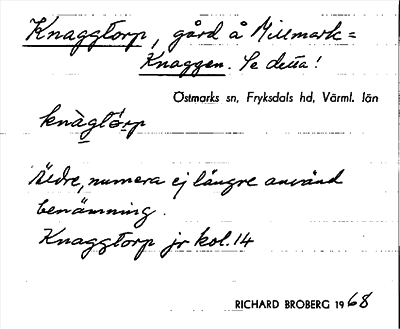 Knaggtorp, gård å Millmark=
Knaggen. Se detta!
Östmarks sn, Fryksdals hd, Värml. län
knàgtó̱rp
Äldre, numera ej längre använd
benämning.
Knaggtorp jr kol. 14
RICHARD BROBERG 1968